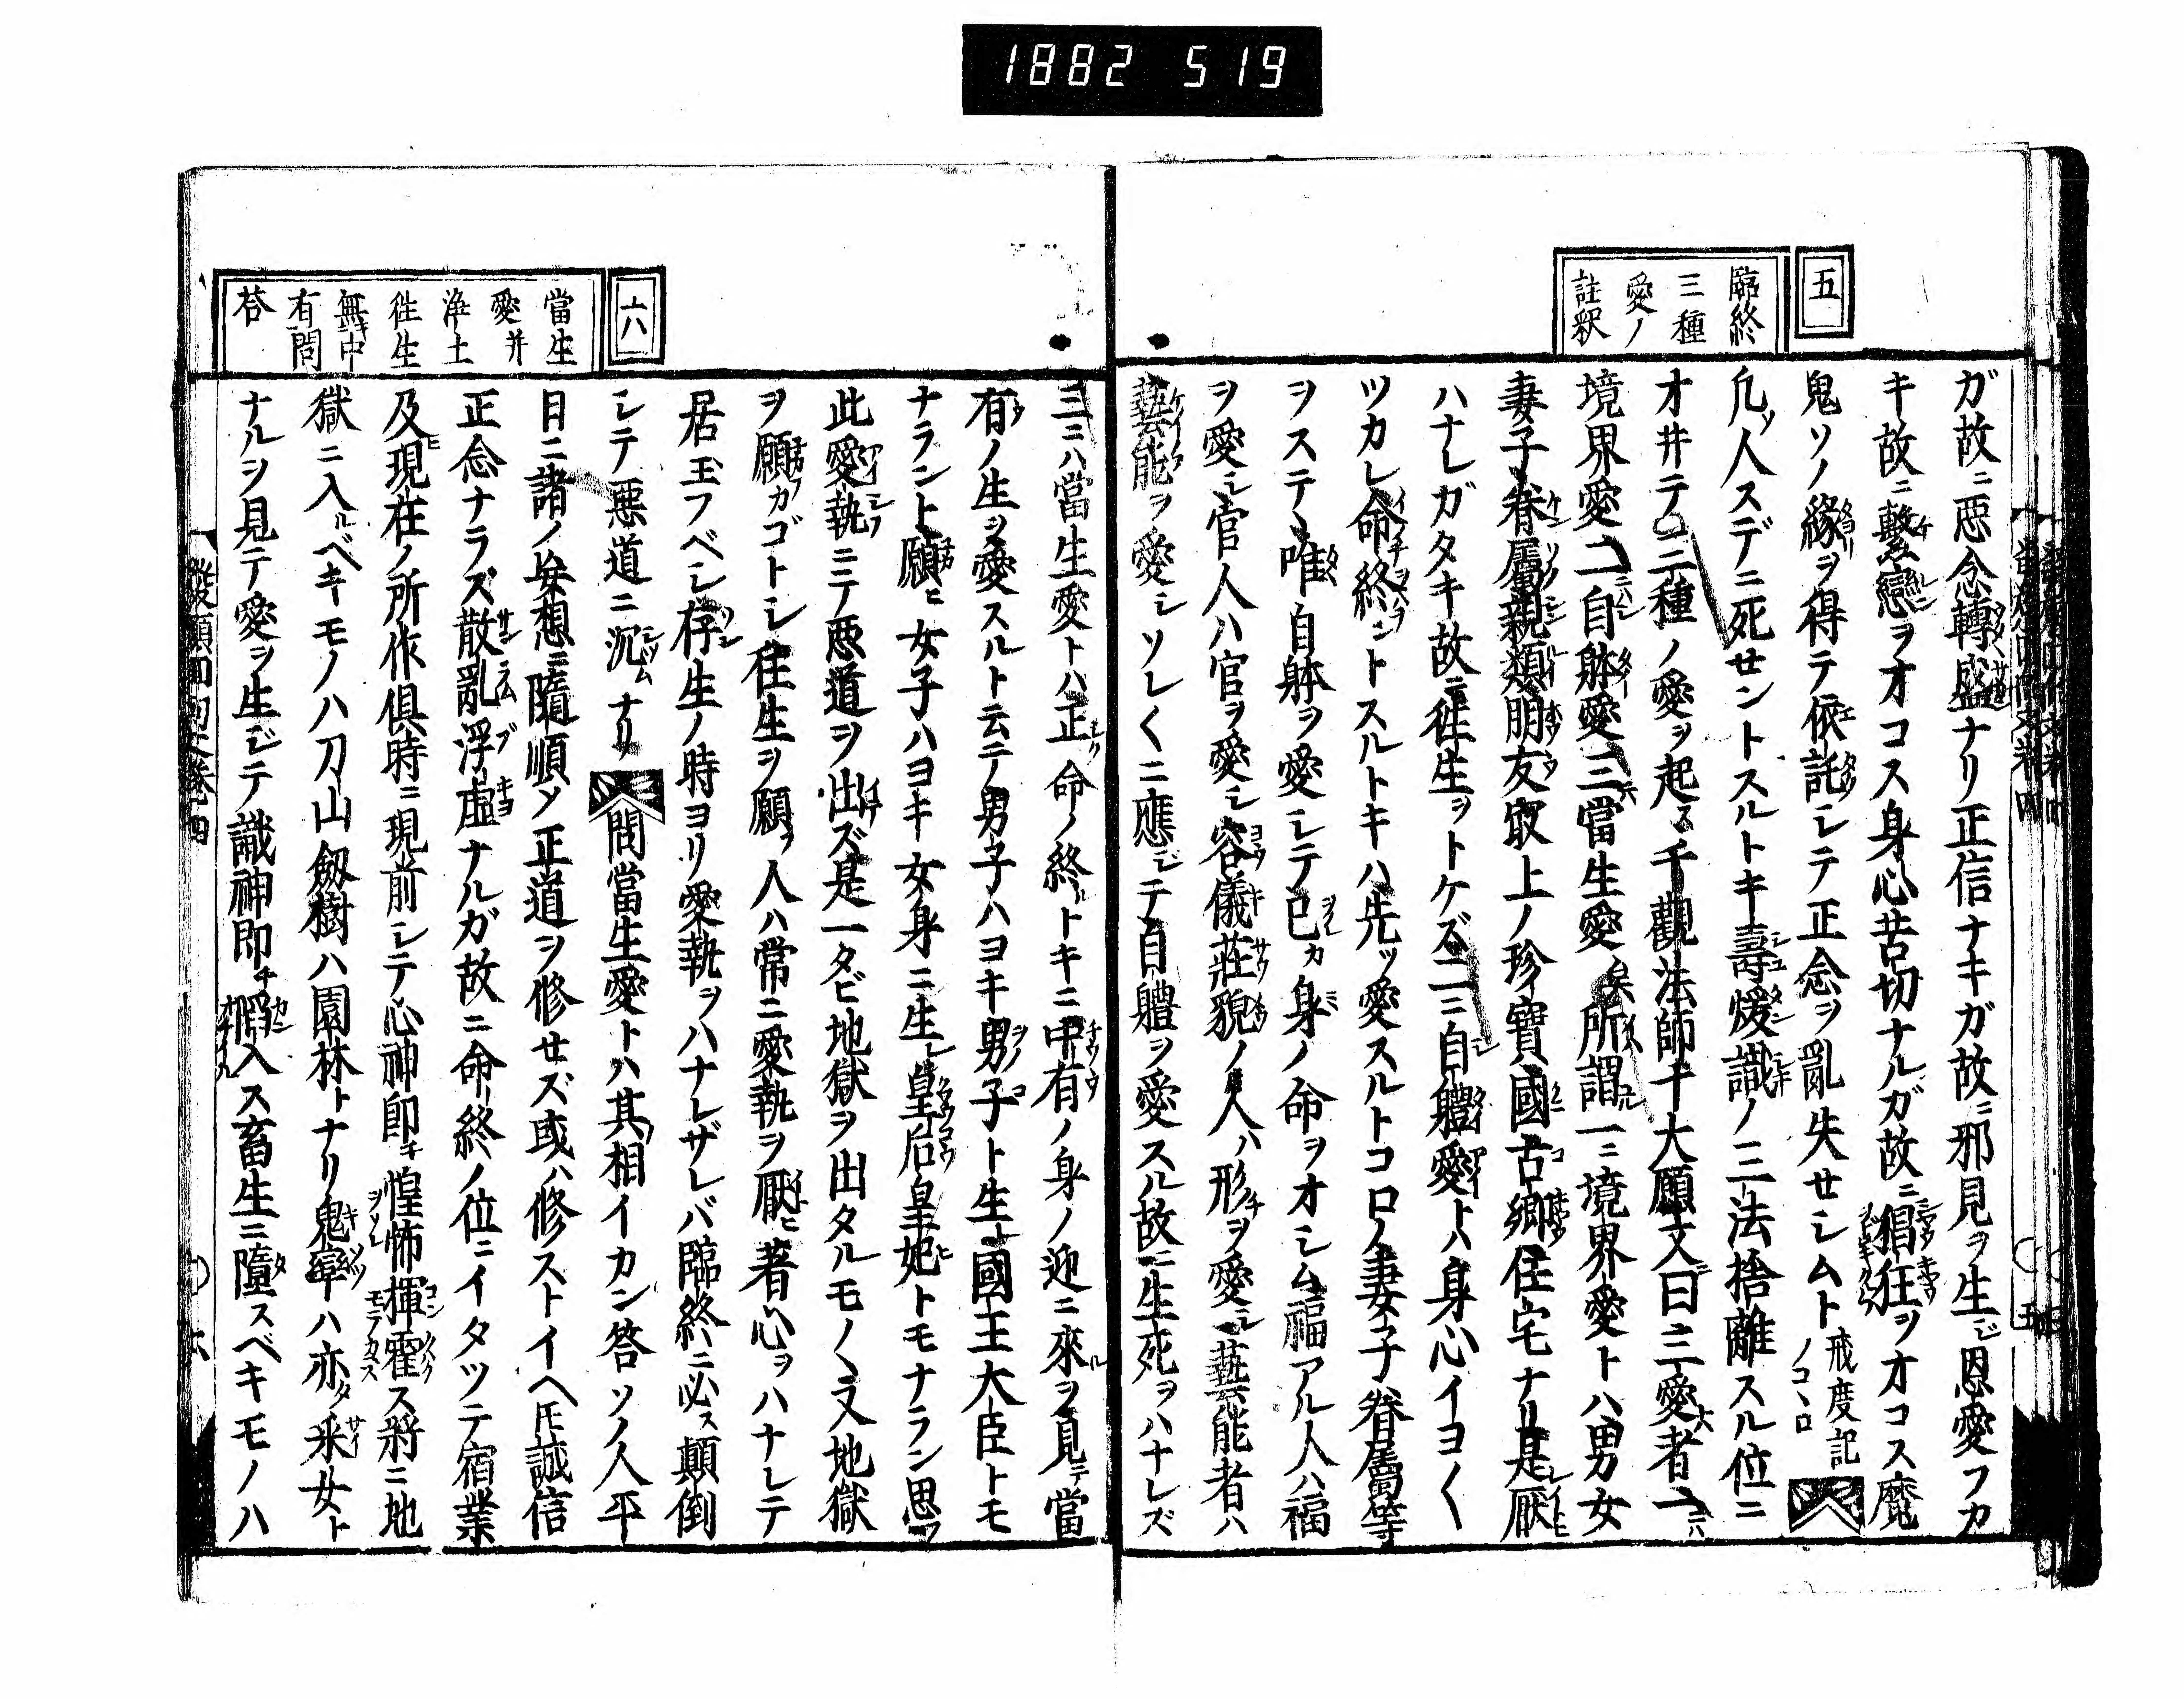 1882 519
五
臨終
三種
愛ノ
註釈
ガ故ニ惡念轉盛ナリ正信ナキガ故ニ邪見ヲ生ジ恩愛フカ
キ故ニ繫戀ヲオコス身心苦切ナルガ故ニ猖狂ヲオコス魔
鬼ソノ緣ヲ得テ依託シテ正念ヲ亂失セシムト戒度記ノコヽロ
凢ソ人スデニ死セントスルトキ壽煖識ノ三法捨離スル位ニ
オ井テ三種ノ愛ヲ起ス千觀法師十大願文ニ曰三愛者一ニハ
境界愛二ニハ自躰愛三ニハ當生愛矣所謂一ニ境界愛トハ男女
妻子眷屬親類朋友㝡上ノ珍寶國古鄕住宅ナリ是レ厭ヒ
ハナレガタキ故ニ往生ヲトケズ二ニ自體愛トハ身心イヨ〱
ツカレ命終ントスルトキハ先ツ愛スルトコロノ妻子眷屬等
ヲステヽ唯自躰ヲ愛シテ己カ身ノ命ヲオシム福アル人ハ福
ヲ愛シ官人ハ官ヲ愛シ容儀莊貌ノ人ハ形チヲ愛シ藝能者ハ
藝能ヲ愛シソレ〱ニ應ジテ自體ヲ愛スル故ニ生死ヲハナレズ
六
當生
愛并
淨土
徃生
無中
有問
荅
三ニハ當生愛トハ正ク命ノ終ルトキニ中有ノ身ノ迎ニ來ルヲ見テ當
有ノ生ヲ愛スルト云テ男子ハヨキ男子ト生レ國王大臣トモ
ナラント願ヒ女子ハヨキ女身ニ生レ皇后皇妃トモナラン思フ
此愛執ニテ惡道ヲ出ズ是一タビ地獄ヲ出タルモノヽ又地獄
ヲ願フカゴトシ往生ヲ願フ人ハ常ニ愛執ヲ厭ヒ著心ヲハナレテ
居玉フベシ存生ノ時ヨリ愛執ヲハナレザレバ臨終ニ必ス顛倒
シテ惡道ニ沉ムナリ問當生愛トハ其相イカン答ソノ人平
日ニ諸ノ妄想ニ隨順ソ正道ヲ修セズ或ハ修ストイヘ𪜈誠信
正念ナラズ散亂浮虛ナルガ故ニ命終ノ位ニイタツテ宿業
及ヒ現在ノ所作俱時ニ現前シテ心神卽チ惶怖揮霍ス將ニ地
獄ニ入ルベキモノハ刀山劔樹ハ園林トナリ鬼率ハ亦タ采女ト
ナルヲ見テ愛ヲ生ジテ識神卽チ入ス畜生ニ墮スベキモノハ
發願回向文卷四